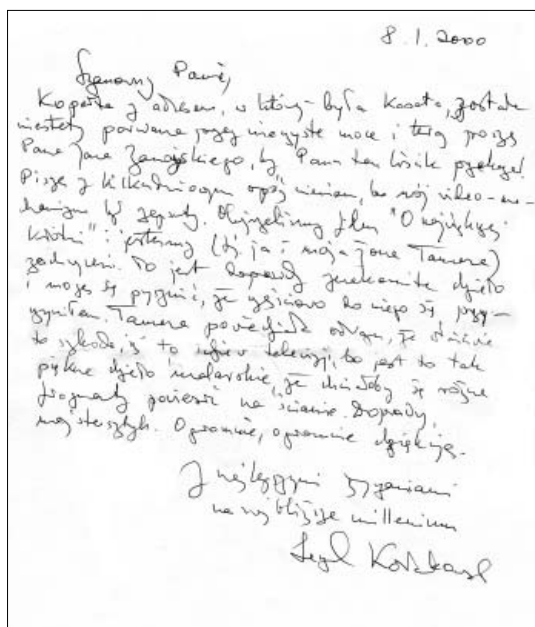 8. 1. 2000
Szanowny Panie,
Koperta z adresem, w której była kaseta, została
niestety porwana przez nieczyste moce i teraz proszę
Pana Jana Zamojskiego, by Panu ten liścik przekazał.
Piszę z kilkudniowym opóźnieniem, bo mój video-me-
chanizm był zepsuty. Obejrzeliśmy film "O największej
kłótni" i jesteśmy (tj. ja i moja żona Tamara)
zachwyceni. To jest doprawdy znakomite dzieło
i mogę się pysznić, że y się przy-
czyniłem. Tamara powiedziała od razu, że właściwie
to szkoda, iż to idzie w telewizji, bo jest to tak
piękne dzieło malarskie, że chciałoby się różne
fragmenty powiesić na ścianie. Doprawdy,
majstersztyk. Ogromnie, ogromnie dziękuję.
Z najlepszymi życzeniami
na najbliższe millenium
Leszek Kołakowski